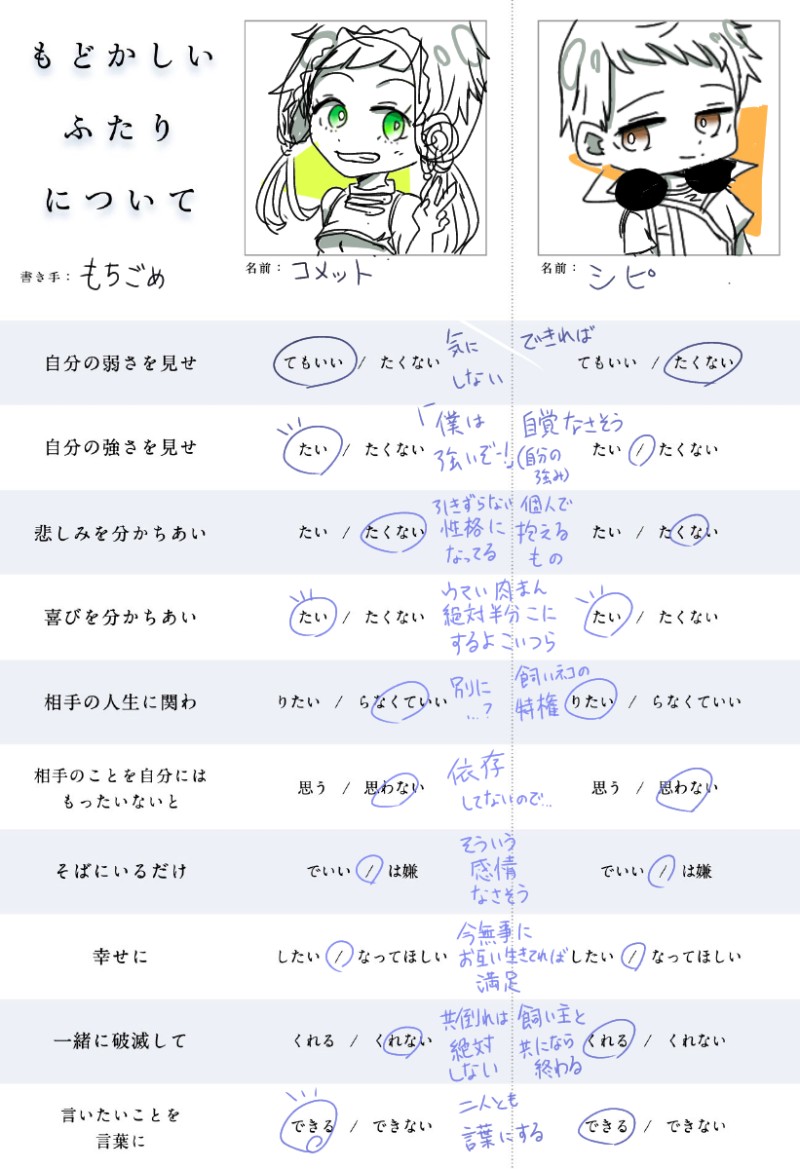 もどかしい
ふたり
について
書き手： もちごめ
名前： コメット
名前： シピ
自分の弱さを見せ
てもいい / たくない
気に
しない
できれば
てもいい / たくない
自分の強さを見せ
たい / たくない
「僕は
強いぞー!」
自覚なさそう
(自分の
強み)
たい / たくない
悲しみを分かちあい
たい / たくない
引きずらない
性格に
なってる
個人で
抱える
もの
たい / たくない
喜びを分かちあい
たい / たくない
うまい肉まん
絶対半分こに
するよこいつら
たい / たくない
相手の人生に関わ
りたい / らなくていい
別に
…?
飼いネコの
特権
りたい / らなくていい
相手のことを自分には
もったいないと
思う / 思わない
依存
してないので…
思う / 思わない
そばにいるだけ
でいい / は嫌
そういう
感情
なさそう
でいい / は嫌
幸せに
したい / なってほしい
今無事に
お互い生きてれば
満足
したい / なってほしい
一緒に破滅して
くれる / くれない
共倒れは
絶対
しない
飼い主と
共になら
終わる
くれる / くれない
言いたいことを
言葉に
できる / できない
二人とも
言葉にする
できる / できない